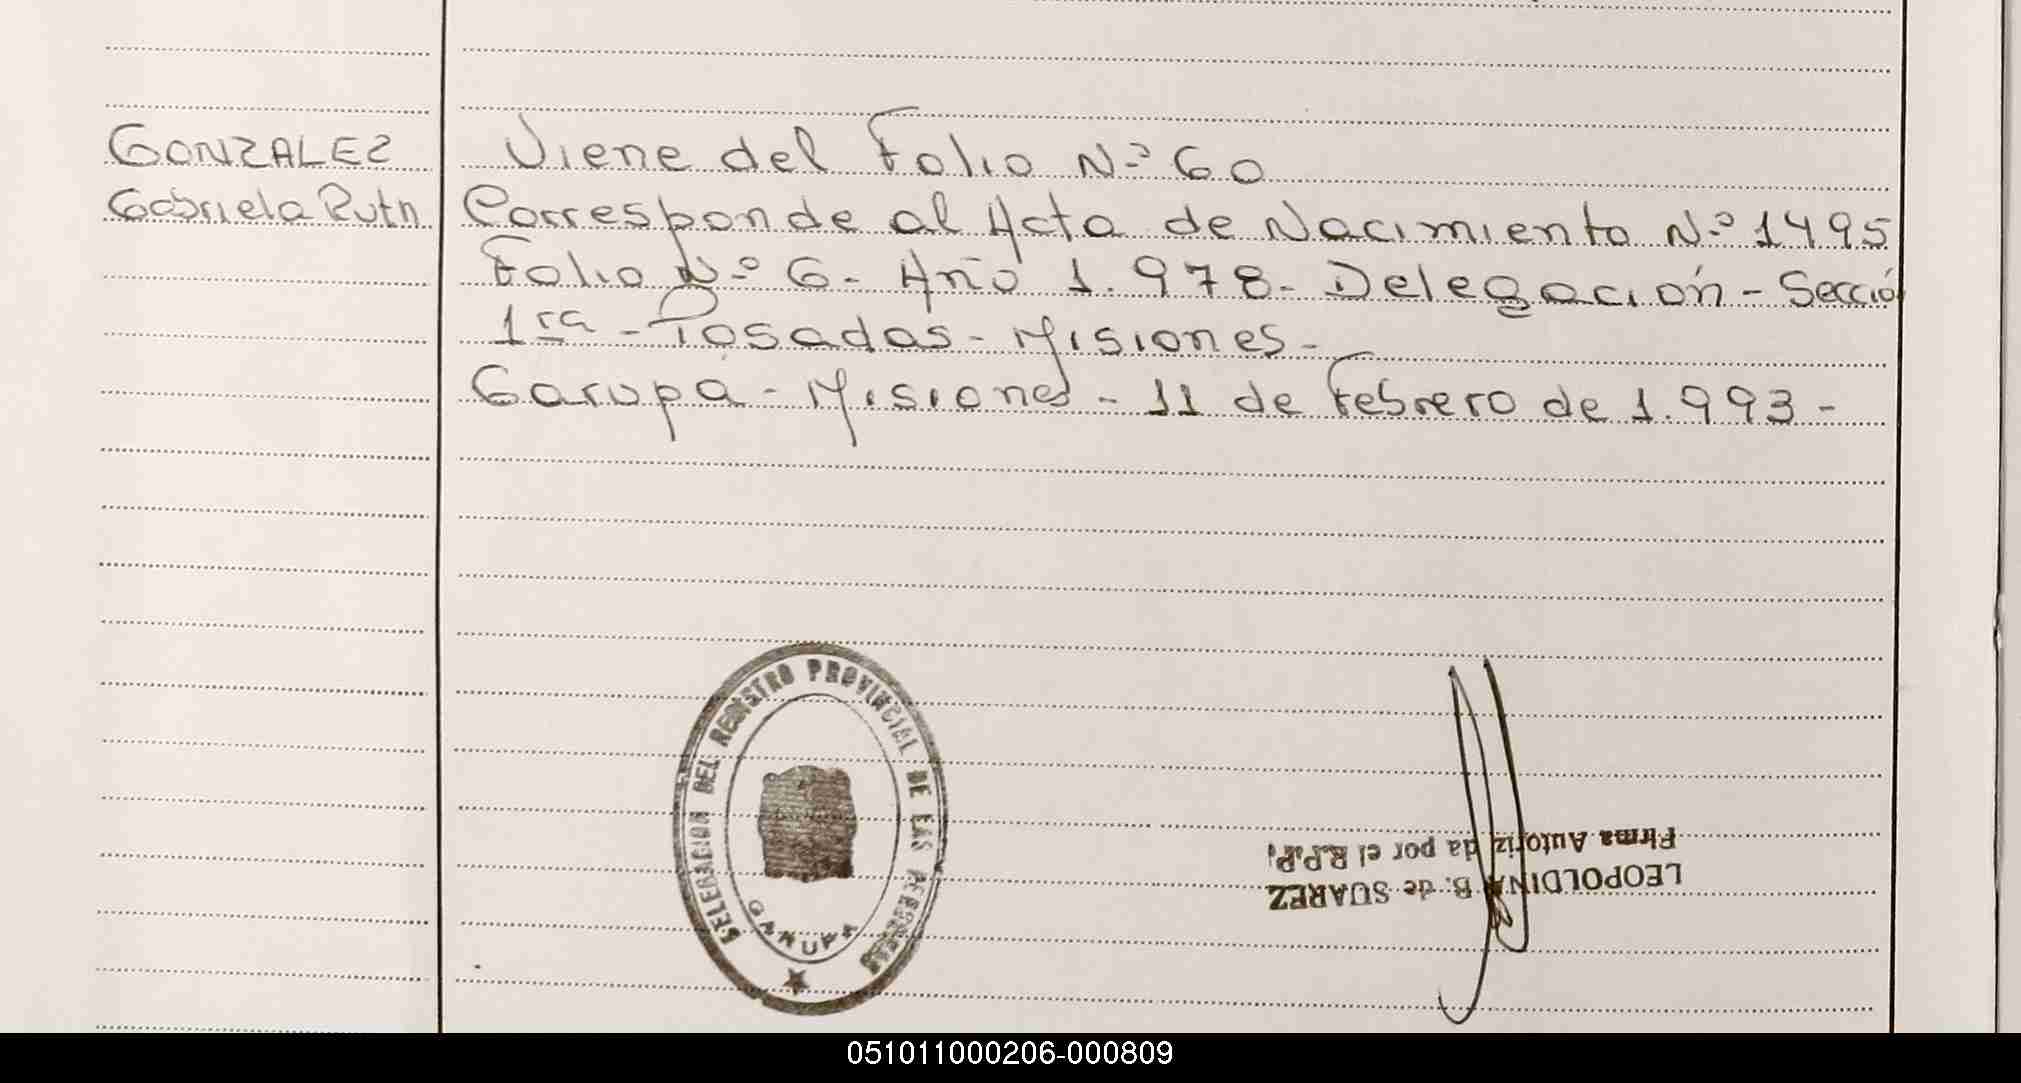 GONZALEZ
Gabriela Ruth
Viene del Folio N.º 60
Corresponde al Acta de Nacimiento N.º 1495
Folio N.º 6.- Año 1.978.- Delegación - Secció
1ra - Posadas - Misiones -
Garupá - Misiones - 11 de Febrero de 1.993 -
DELEGACION DEL REGISTRO PROVINCIAL DE LAS PERSONAS
GARUPA
LEOPOLDINA B. de SUAREZ
Firma Autorizada por el R.P.P.
051011000206-000809